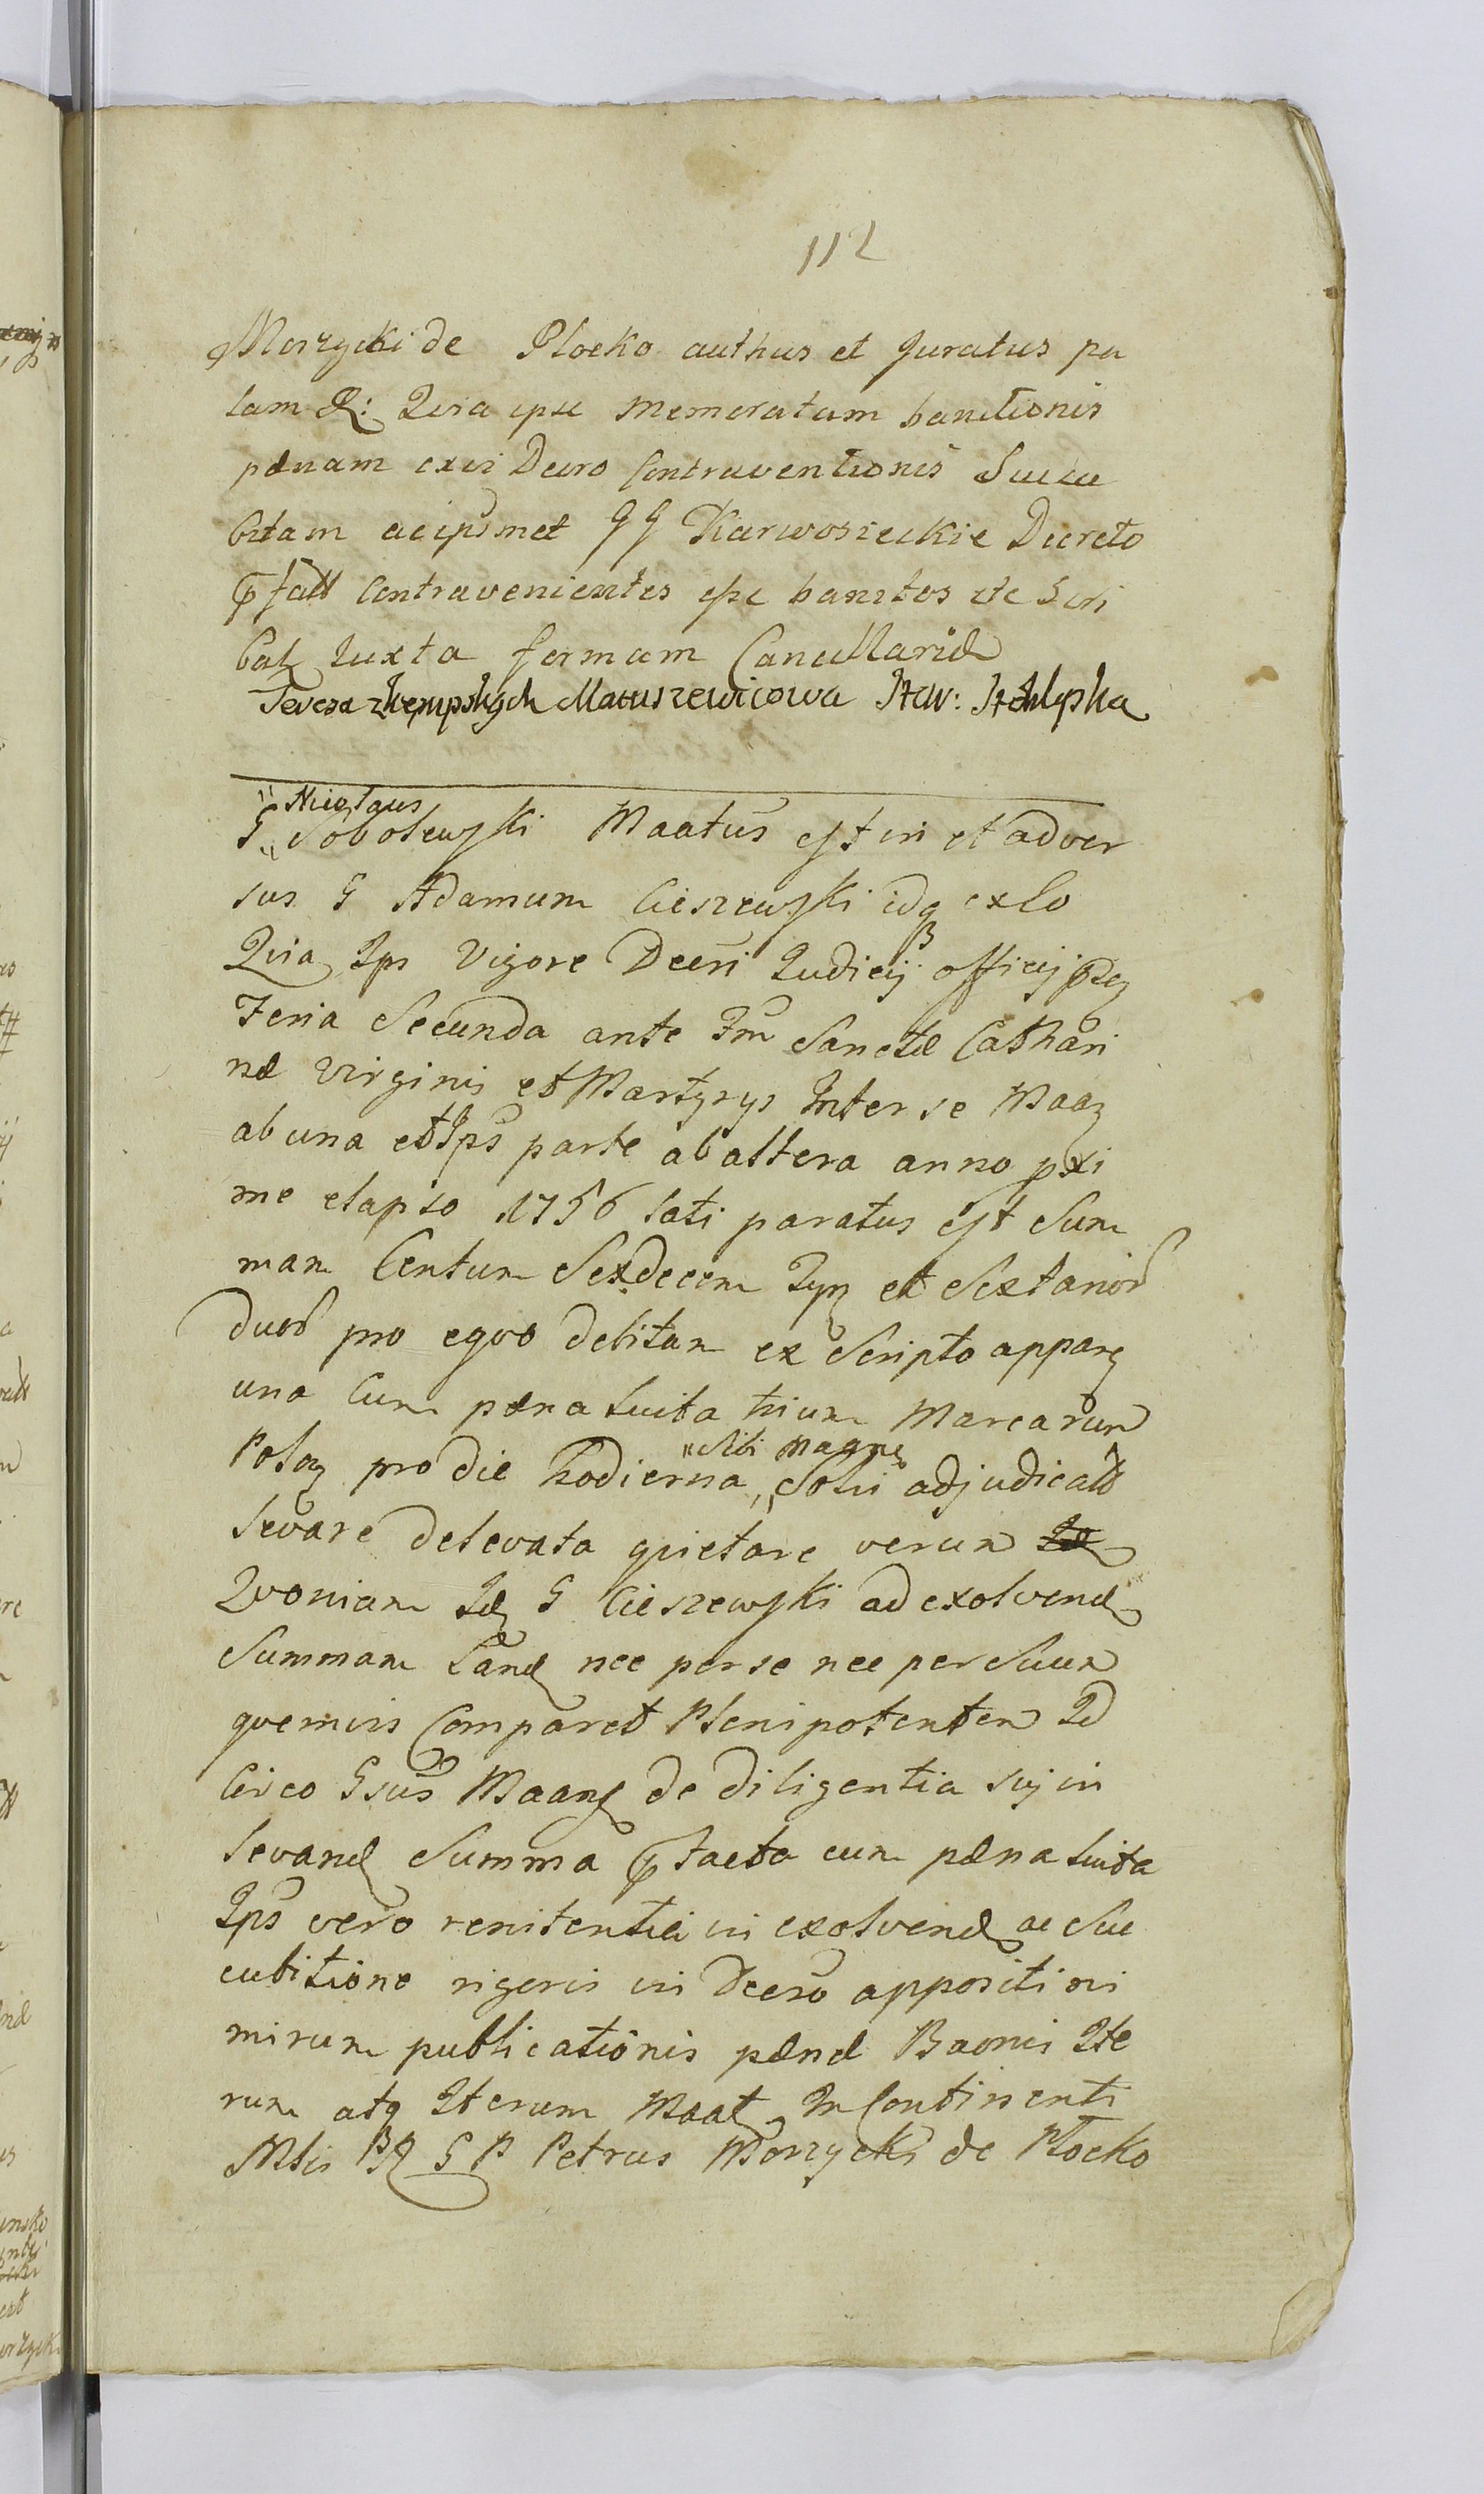 112
Morzycki de Plocko authus et Juratus pa
lam &: Quia ipse memoratam bannitionis
pænam exvi Decro Contraventionis Succu
bitam ac ipsmet GG Karwosieckie Decreto
fatt Contravenientes esse banitos ac Scri
bat Juxta formam Cancellariæ
Teresa z Kempskych Matuszewicowa
Nicolaus
G Sobolewski Maatus est in et adver
sus G Adamum Cieszewski idq exCo
Quia Ips Vigore Decri Judicij officij
Feria Secunda ante Fm Sanctæ Cathari
næ Virginis et Martyrys Inter se Maaz
ab una et Ips parte ab altera anno pxi
me elapso 1756 lati paratus est Sum
mam Centum Sexdecem et Sextanior
duos pro eqvo debitam ex Scripto apparz
una Cum pæna luita trium Marcarum
Polaz pro die hodierna Solvi adjudicatt
Sibi Maane
levare delevata quietare verum
Qvoniam G Cieszewski ad exolvend
Summam Eand nec per se nec per Suum
qvemvis Comparet Plenipotentem Id
Circo Gsus Maans de diligentia suj in
levand Summa tacta cum pæna luita
Ips vero renitentia in exolvend ac Suc
cubitione rigoris in Decro appositi ni
mirum publicationis pænæ Baonis Ite
rum atq Iterum Maat In Continenti
Mtis G P Petrus Morzycki de Plocko